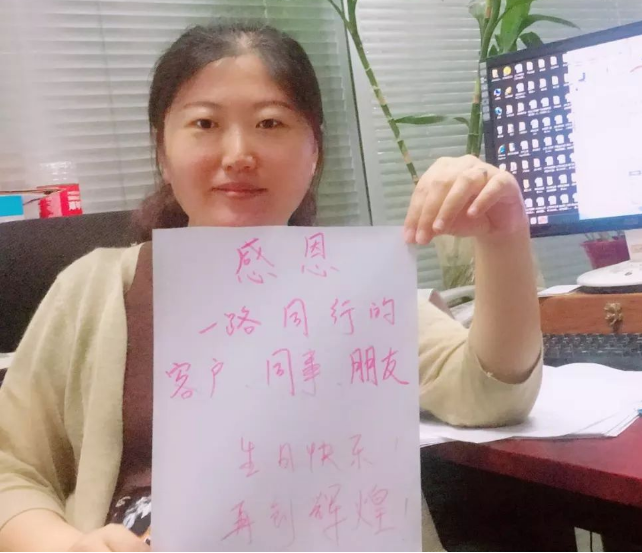 感恩
一路同行的
客户、同事、朋友
生日快乐!
再创辉煌!